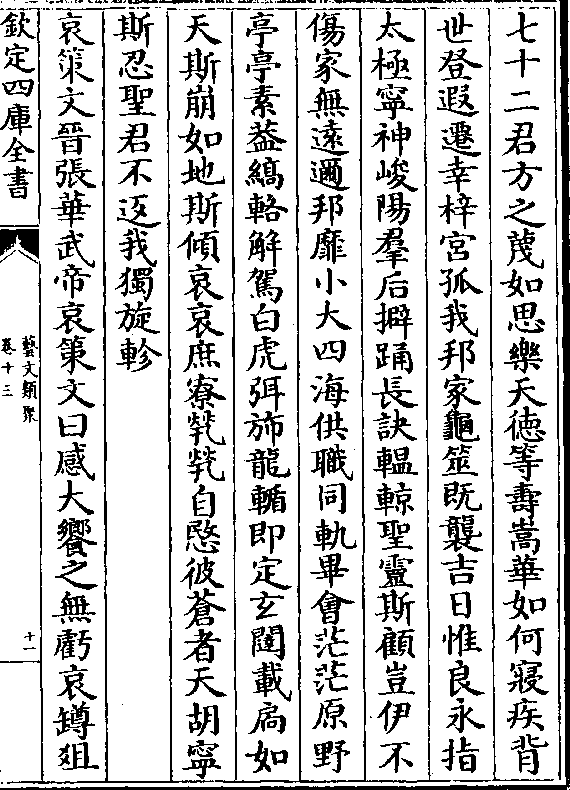 七十二君方之蔑如思樂天徳等壽嵩華如何寢疾背
世登遐遷幸梓宮孤我邦家龜筮既襲吉日惟良永指
太極寧神峻陽羣后擗踊長訣輼輬聖靈斯顧豈伊不
傷家無遠邇邦靡小大四海供職同軌畢會茫茫原野
亭亭素葢縞輅解駕白虎弭斾龍輴即定玄闥載扃如
天斯崩如地斯傾哀哀庶寮煢煢自愍彼蒼者天胡寧
斯忍聖君不返我獨旋軫
哀策文晉張華武帝哀策文曰感大饗之無虧哀罇爼
欽定四庫全書
藝文類聚
卷十三
十一